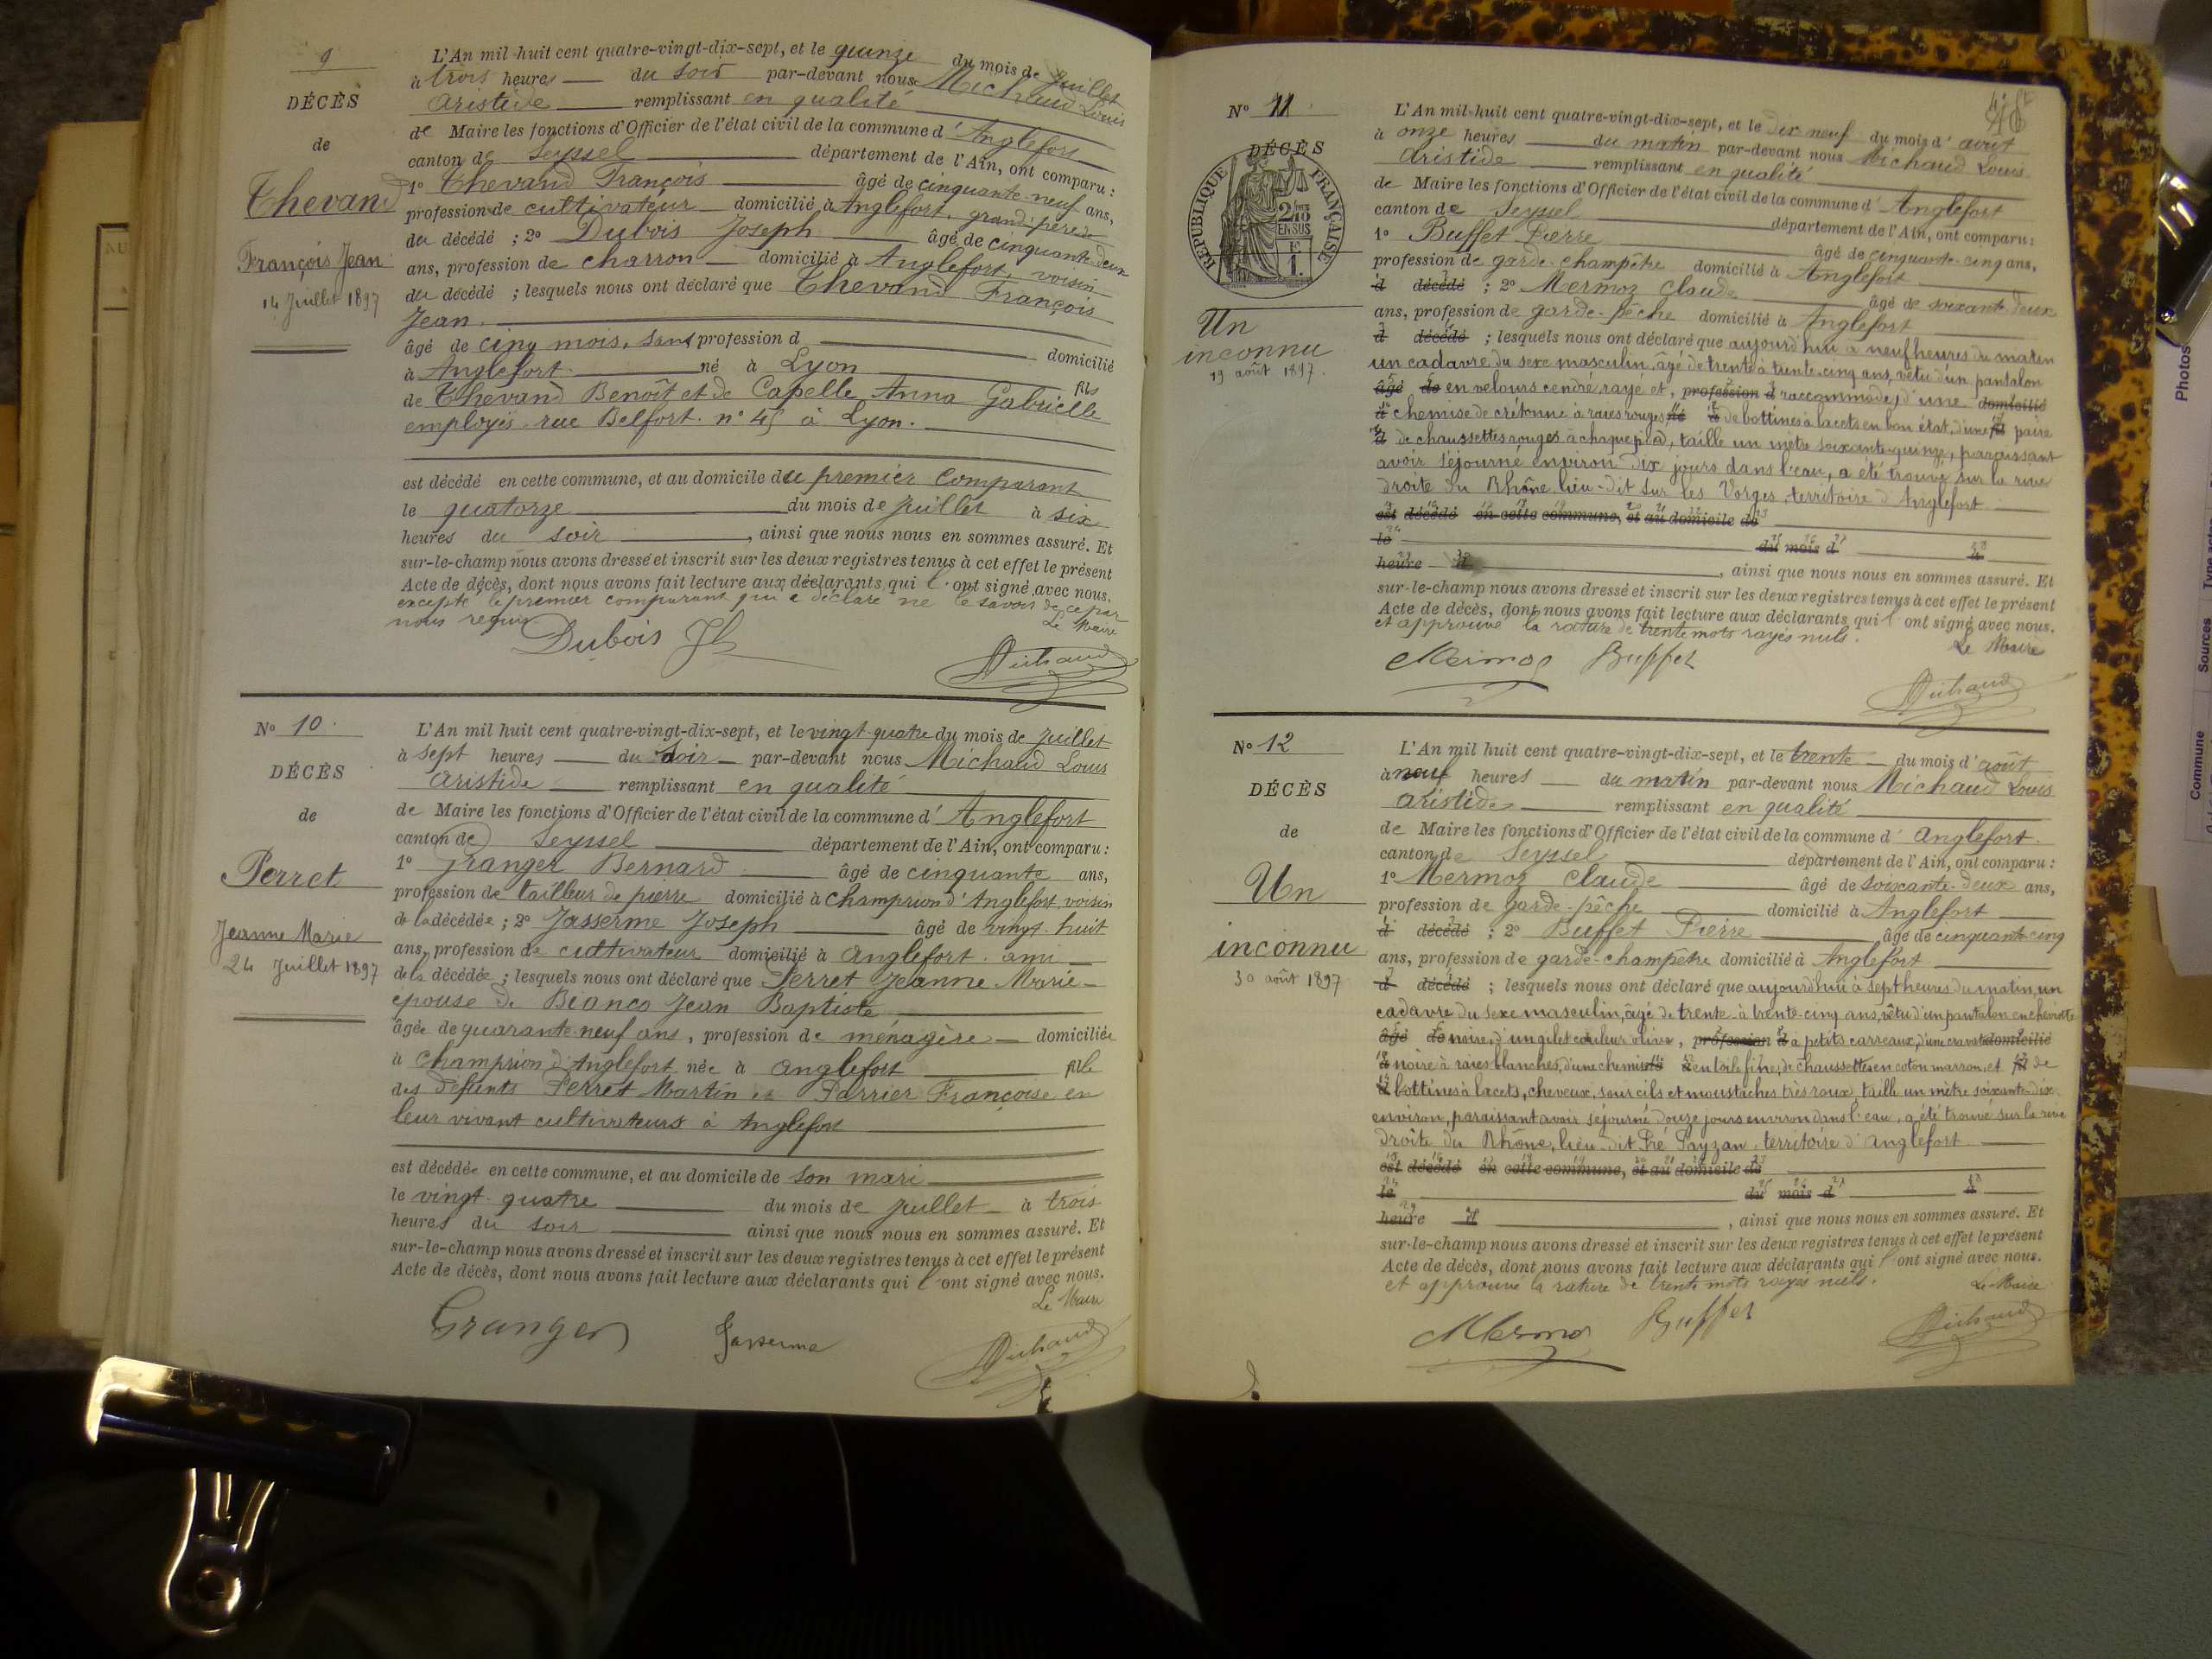 9
DÉCÈS
de
Thevand
François Jean
14 Juillet 1897
L'An mil huit cent quatre-vingt-dix-sept, et le quinze du mois de Juillet
à trois heures du soir par-devant nous Michaud Louis
Aristide remplissant en qualité
de Maire les fonctions d'Officier de l'état civil de la commune d'Anglefort
canton de Seyssel département de l'Ain, ont comparu :
1º Thevand François âgé de cinquante-neuf ans,
profession de cultivateur domicilié à Anglefort, grand'père
du décédé ; 2º Dubois Joseph âgé de cinquante deux
ans, profession de charron domicilié à Anglefort, voisin
du décédé ; lesquels nous ont déclaré que Thevand François
Jean
âgé de cinq mois, sans profession d domicilié
à Anglefort né à Lyon fils
de Thevand Benoît et de Capelle Anna Gabrielle
employés rue Belfort nº 45 à Lyon.
est décédé en cette commune, et au domicile du premier comparant
le quatorze du mois de juillet à six
heures du soir, ainsi que nous nous en sommes assuré. Et
sur-le-champ nous avons dressé et inscrit sur les deux registres tenus à cet effet le présent
Acte de décès, dont nous avons fait lecture aux déclarants qui l'ont signé avec nous.
excepté le premier comparant qui a déclaré ne le savoir de ce par
nous requis
Le Maire
Dubois Jh
Michaud
Nº 10
DÉCÈS
de
Perret
Jeanne Marie
24 Juillet 1897
L'An mil huit cent quatre-vingt-dix-sept, et le vingt-quatre du mois de juillet
à sept heures du soir par-devant nous Michaud Louis
Aristide remplissant en qualité
de Maire les fonctions d'Officier de l'état civil de la commune d'Anglefort
canton de Seyssel département de l'Ain, ont comparu :
1º Granger Bernard âgé de cinquante ans,
profession de tailleur de pierre domicilié à Champrion d'Anglefort, voisin
de la décédée ; 2º Jasserme Joseph âgé de vingt-huit
ans, profession de cultivateur domicilié à Anglefort ami
de la décédée ; lesquels nous ont déclaré que Perret Jeanne Marie
épouse de Bianco Jean Baptiste
âgée de quarante-neuf ans, profession de ménagère domiciliée
à Champrion d'Anglefort née à Anglefort fille
des défunts Perret Martin et Parrier Françoise en
leur vivant cultivateurs à Anglefort
est décédée en cette commune, et au domicile de son mari
le vingt-quatre du mois de juillet à trois
heures du soir ainsi que nous nous en sommes assuré. Et
sur-le-champ nous avons dressé et inscrit sur les deux registres tenus à cet effet le présent
Acte de décès, dont nous avons fait lecture aux déclarants qui l'ont signé avec nous.
Le Maire
Granger Jasserme Michaud
Nº 11
DÉCÈS
RÉPUBLIQUE FRANÇAISE
2/10 EN SUS
1.
Un
inconnu
19 août 1897
L'An mil huit cent quatre-vingt-dix-sept, et le dix-neuf du mois d'août
à onze heures du matin par-devant nous Michaud Louis
Aristide remplissant en qualité
de Maire les fonctions d'Officier de l'état civil de la commune d'Anglefort
canton de Seyssel département de l'Ain, ont comparu :
1º Buffet Pierre âgé de cinquante-cinq ans,
profession de garde-champêtre domicilié à Anglefort
d décédé ; 2º Mermoz Claude âgé de soixante-deux
ans, profession de garde-pêche domicilié à Anglefort
d décédé ; lesquels nous ont déclaré que aujourd'hui à neuf heures du matin
un cadavre du sexe masculin, âgé de trente à trente-cinq ans, vêtu d'un pantalon
âgé de en velours cendré rayé et, profession d raccommodé, d'une domicilié
à chemise de crétonne à raies rouges né à de bottines à lacets en bon état, d'une fils paire
d de chaussettes rouges à chaque pied, taille un mètre soixante-quinze, paraissant
avoir séjourné environ dix jours dans l'eau, a été trouvé sur la rive
droite du Rhône lieu-dit sur les Vorges, territoire d'Anglefort
est décédé en cette commune, et au domicile de
le du mois d à
heure d, ainsi que nous nous en sommes assuré. Et
sur-le-champ nous avons dressé et inscrit sur les deux registres tenus à cet effet le présent
Acte de décès, dont nous avons fait lecture aux déclarants qui l'ont signé avec nous.
et approuvé la rature de trente mots rayés nuls.
Le Maire
Mermoz Buffet
Michaud
Nº 12
DÉCÈS
de
Un
inconnu
30 août 1897
L'An mil huit cent quatre-vingt-dix-sept, et le trente du mois d'août
à neuf heures du matin par-devant nous Michaud Louis
Aristide remplissant en qualité
de Maire les fonctions d'Officier de l'état civil de la commune d'Anglefort.
canton de Seyssel département de l'Ain, ont comparu :
1º Mermoz Claude âgé de soixante-deux ans,
profession de garde-pêche domicilié à Anglefort
d décédé ; 2º Buffet Pierre âgé de cinquante-cinq
ans, profession de garde-champêtre domicilié à Anglefort
d décédé ; lesquels nous ont déclaré que aujourd'hui à sept heures du matin, un
cadavre du sexe masculin, âgé de trente à trente-cinq ans, vêtu d'un pantalon en cheviotte
âgé de noire, d'un gilet couleur olive, profession d à petits carreaux, d'une cravate domicilié
à noire à raies blanches, d'une chemise né à en toile fine, de chaussettes en coton marron, et fils de
d bottines à lacets, cheveux, sourcils et moustaches très roux, taille un mètre soixante-dix
environ, paraissant avoir séjourné douze jours environ dans l'eau, a été trouvé sur la rive
droite du Rhône, lieu-dit Pré Payzan, territoire d'Anglefort
est décédé en cette commune, et au domicile de
le du mois d à
heure d, ainsi que nous nous en sommes assuré. Et
sur-le-champ nous avons dressé et inscrit sur les deux registres tenus à cet effet le présent
Acte de décès, dont nous avons fait lecture aux déclarants qui l'ont signé avec nous.
et approuvé la rature de trente mots rayés nuls.
Le Maire
Mermoz Buffet
Michaud
Photos
Commune Sources Type actes